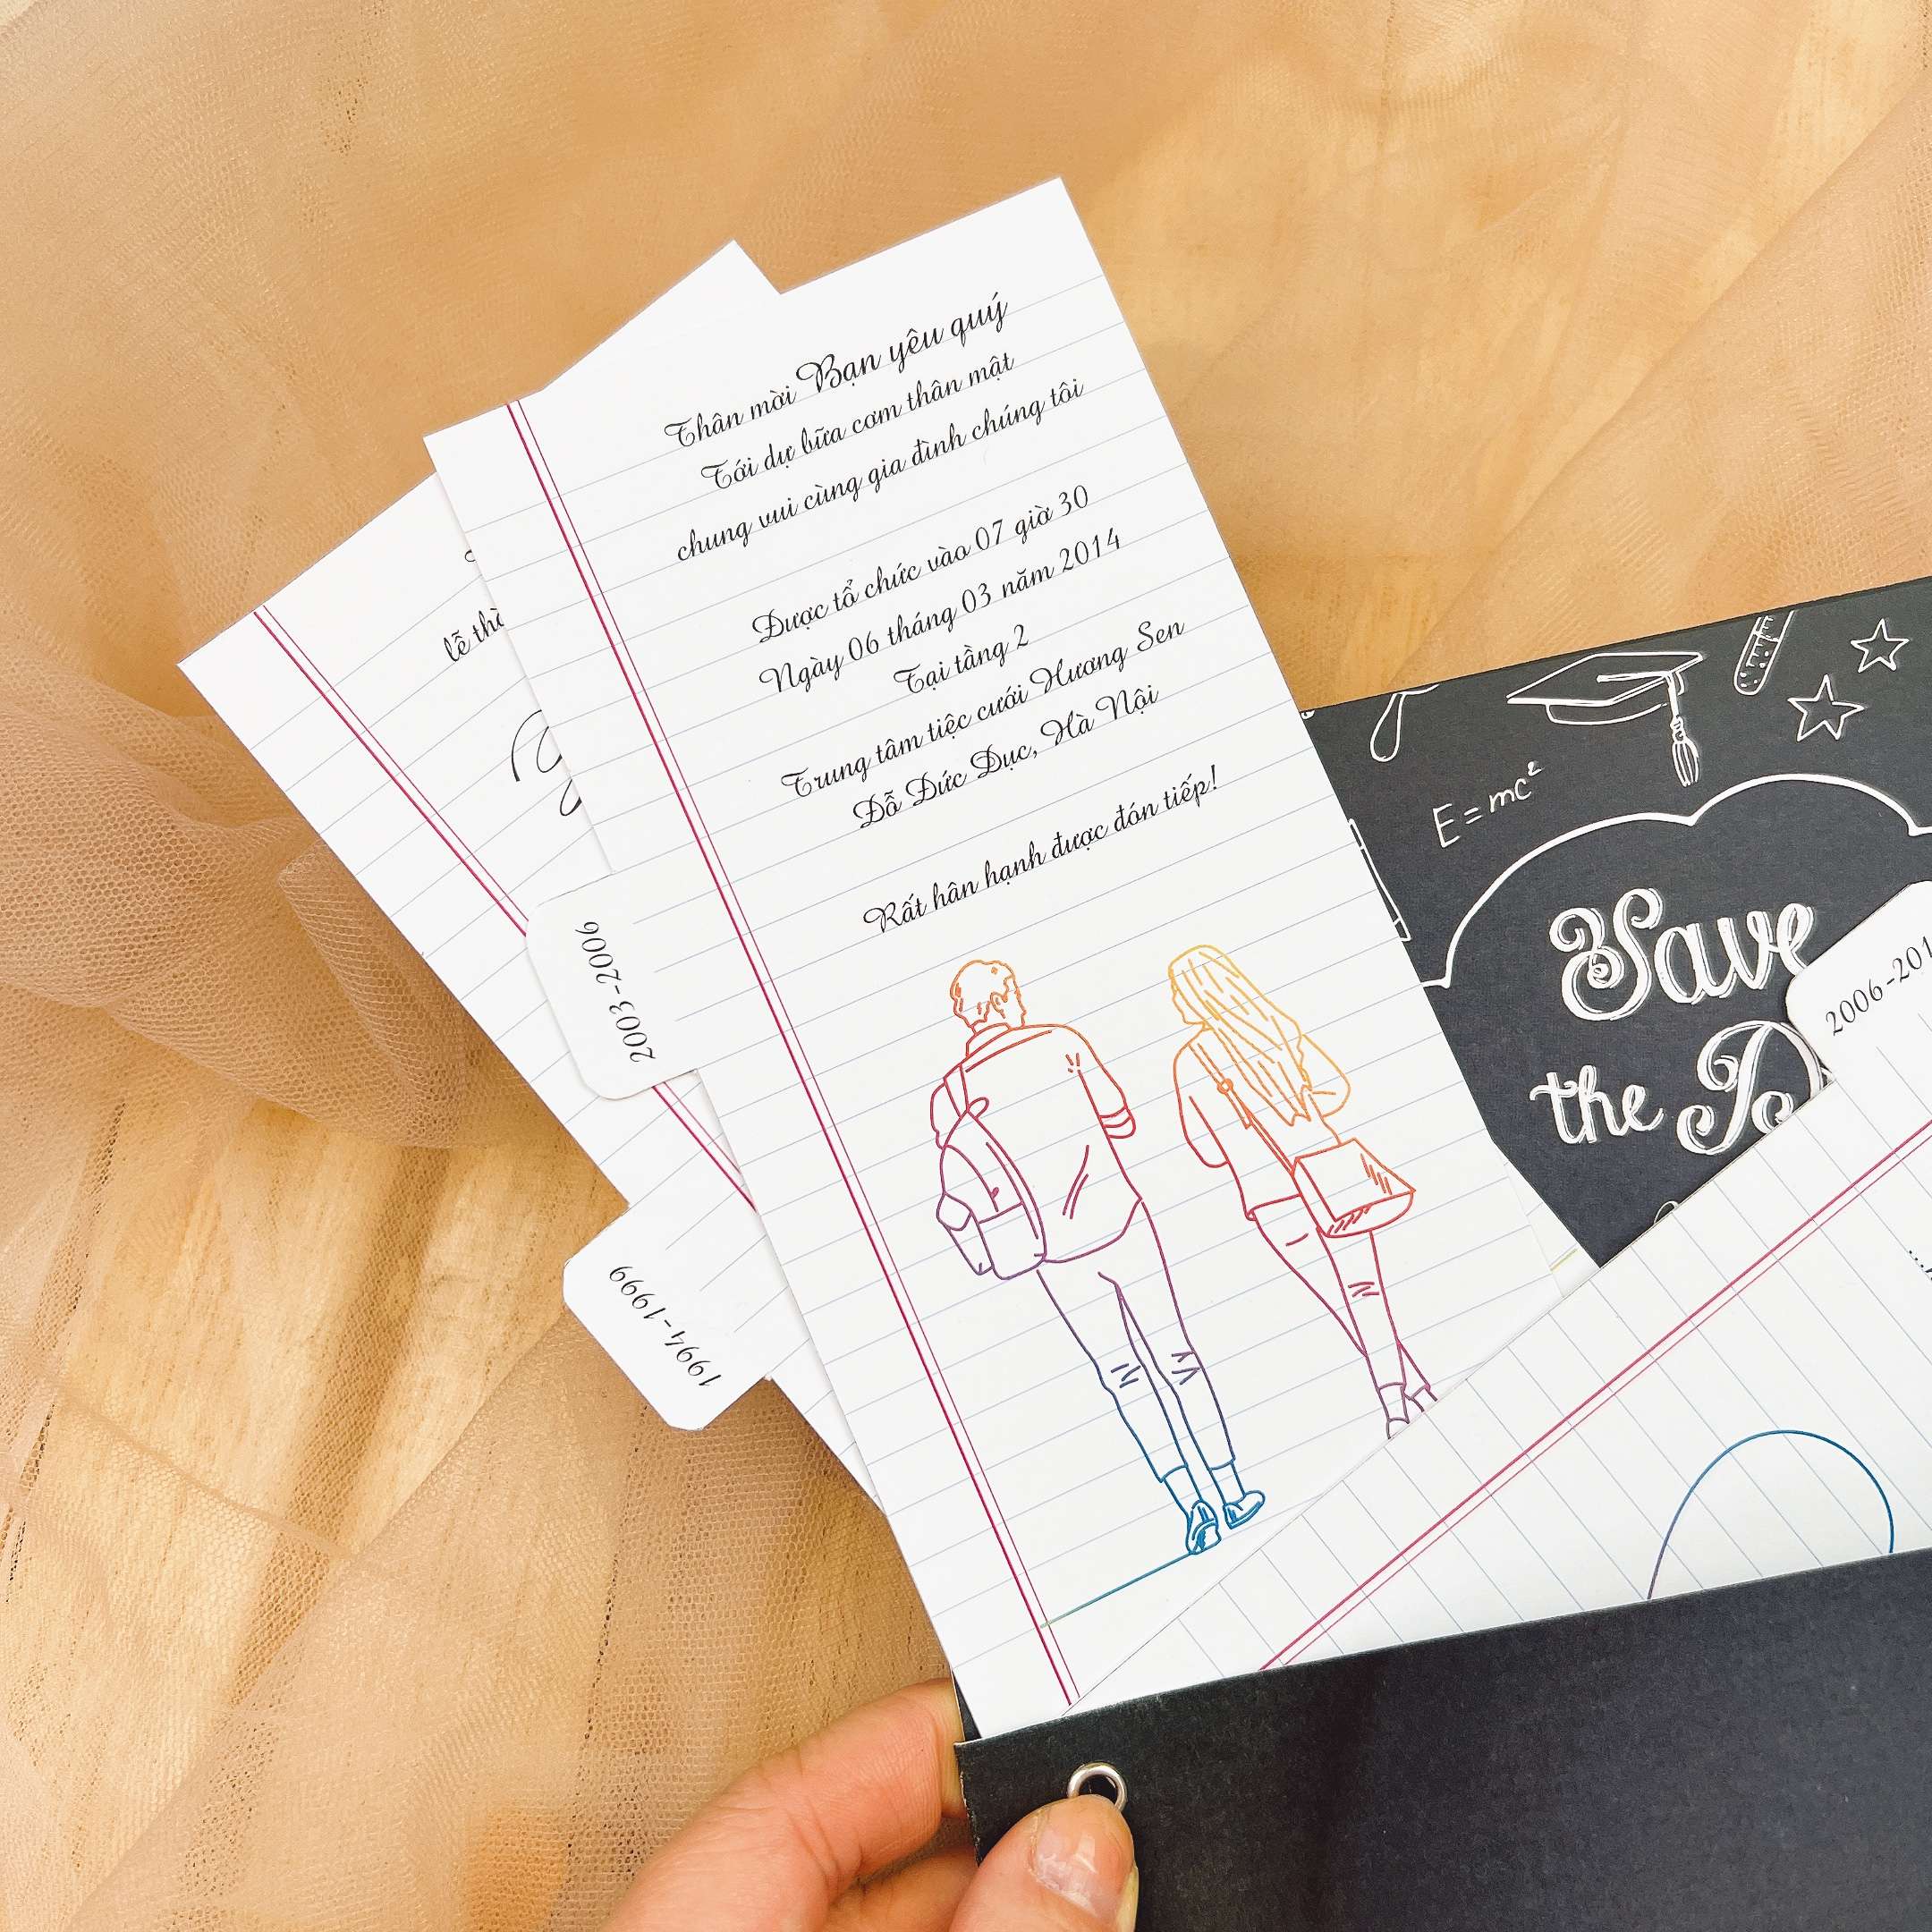 Thân mời Bạn yêu quý
Tới dự bữa cơm thân mật
chung vui cùng gia đình chúng tôi
Được tổ chức vào 07 giờ 30
Ngày 06 tháng 03 năm 2014
Tại tầng 2
Trung tâm tiệc cưới Hương Sen
Đỗ Đức Dục, Hà Nội
Rất hân hạnh được đón tiếp!
lễ
2003-2006
1994-1999
E=mc²
Save
the
2006-201